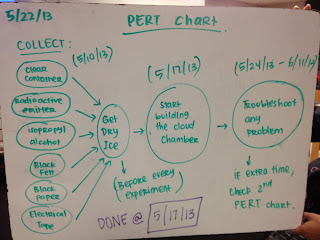 5/22/13
PERT Chart
COLLECT:
(5/10/13)
Clear
Container
Radioactive
emitter
isopropyl
alcohol
Black
Felt
Black
Paper
Electrical
Tape
Get
Dry
Ice
(Before every
experiment)
(5/17/13)
Start
building
the cloud
Chamber
DONE @ 5/17/13
(5/24/13 - 6/11/13)
Troubleshoot
any
problem
if extra time,
check 2nd
PERT chart.